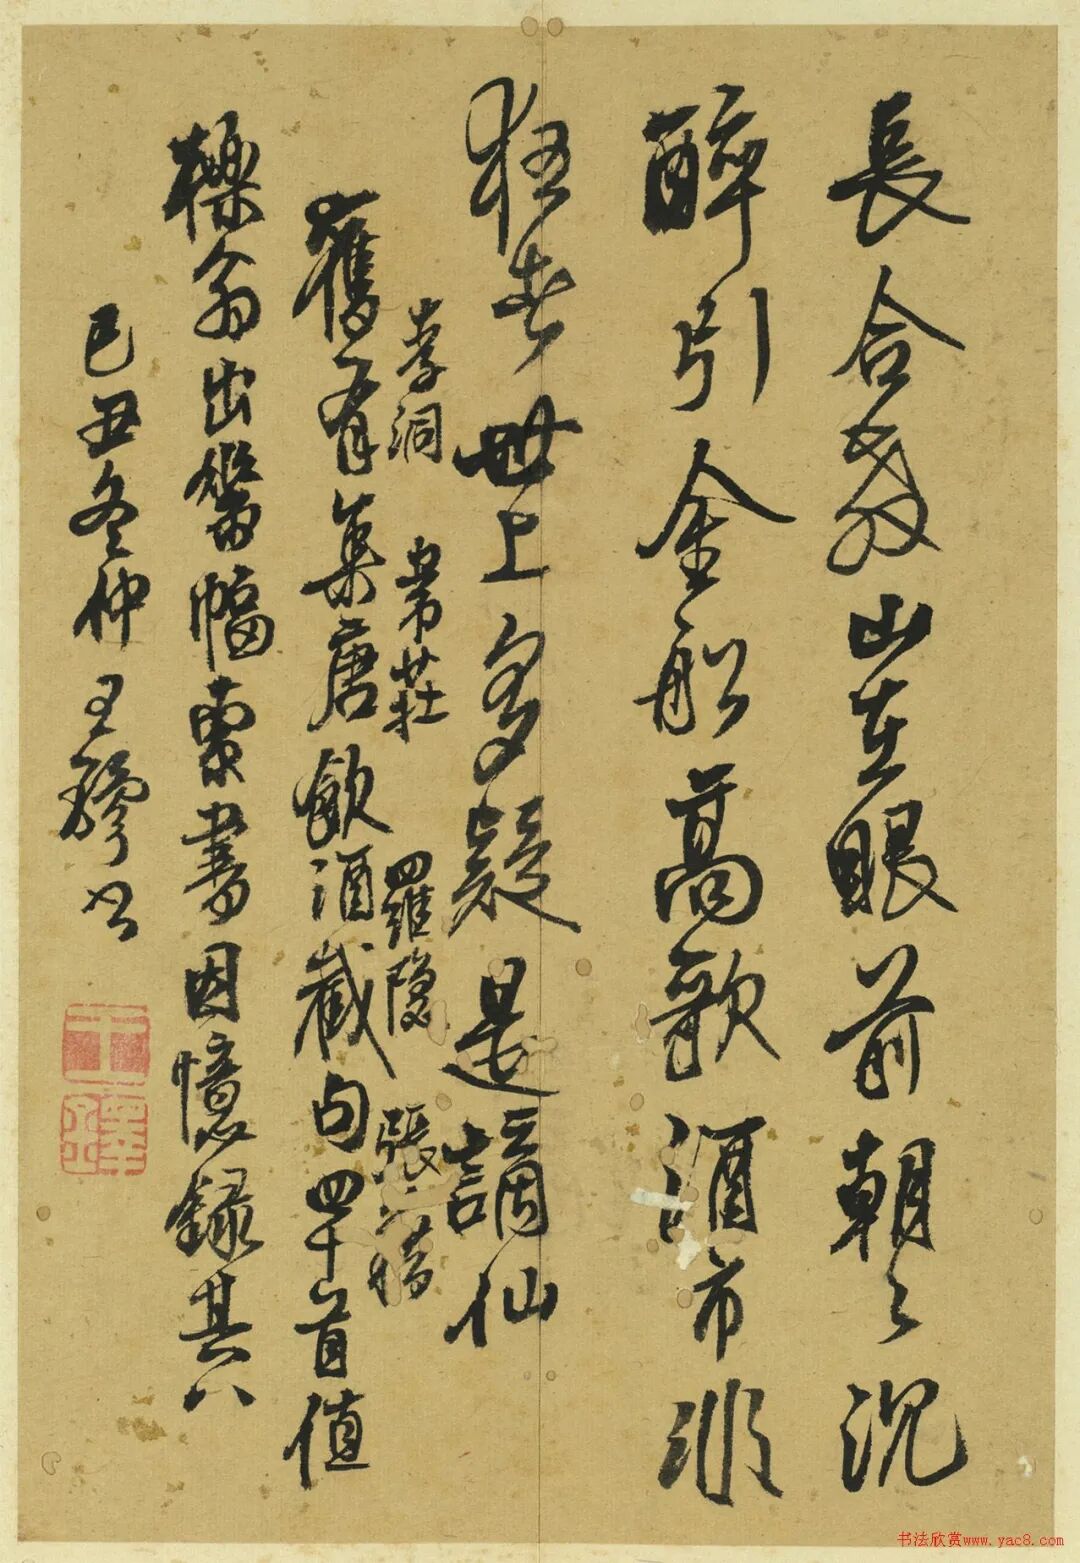 長合教山在眼前朝々沉
醉引金船高歌酒市非
狂者世上多疑是謫仙
李洞 韋莊 羅隱 張籍
舊有集唐飲酒截句四十首值
櫟翁出幅索書因憶錄其八
己丑冬仲王書
书法欣赏www.yac8.com